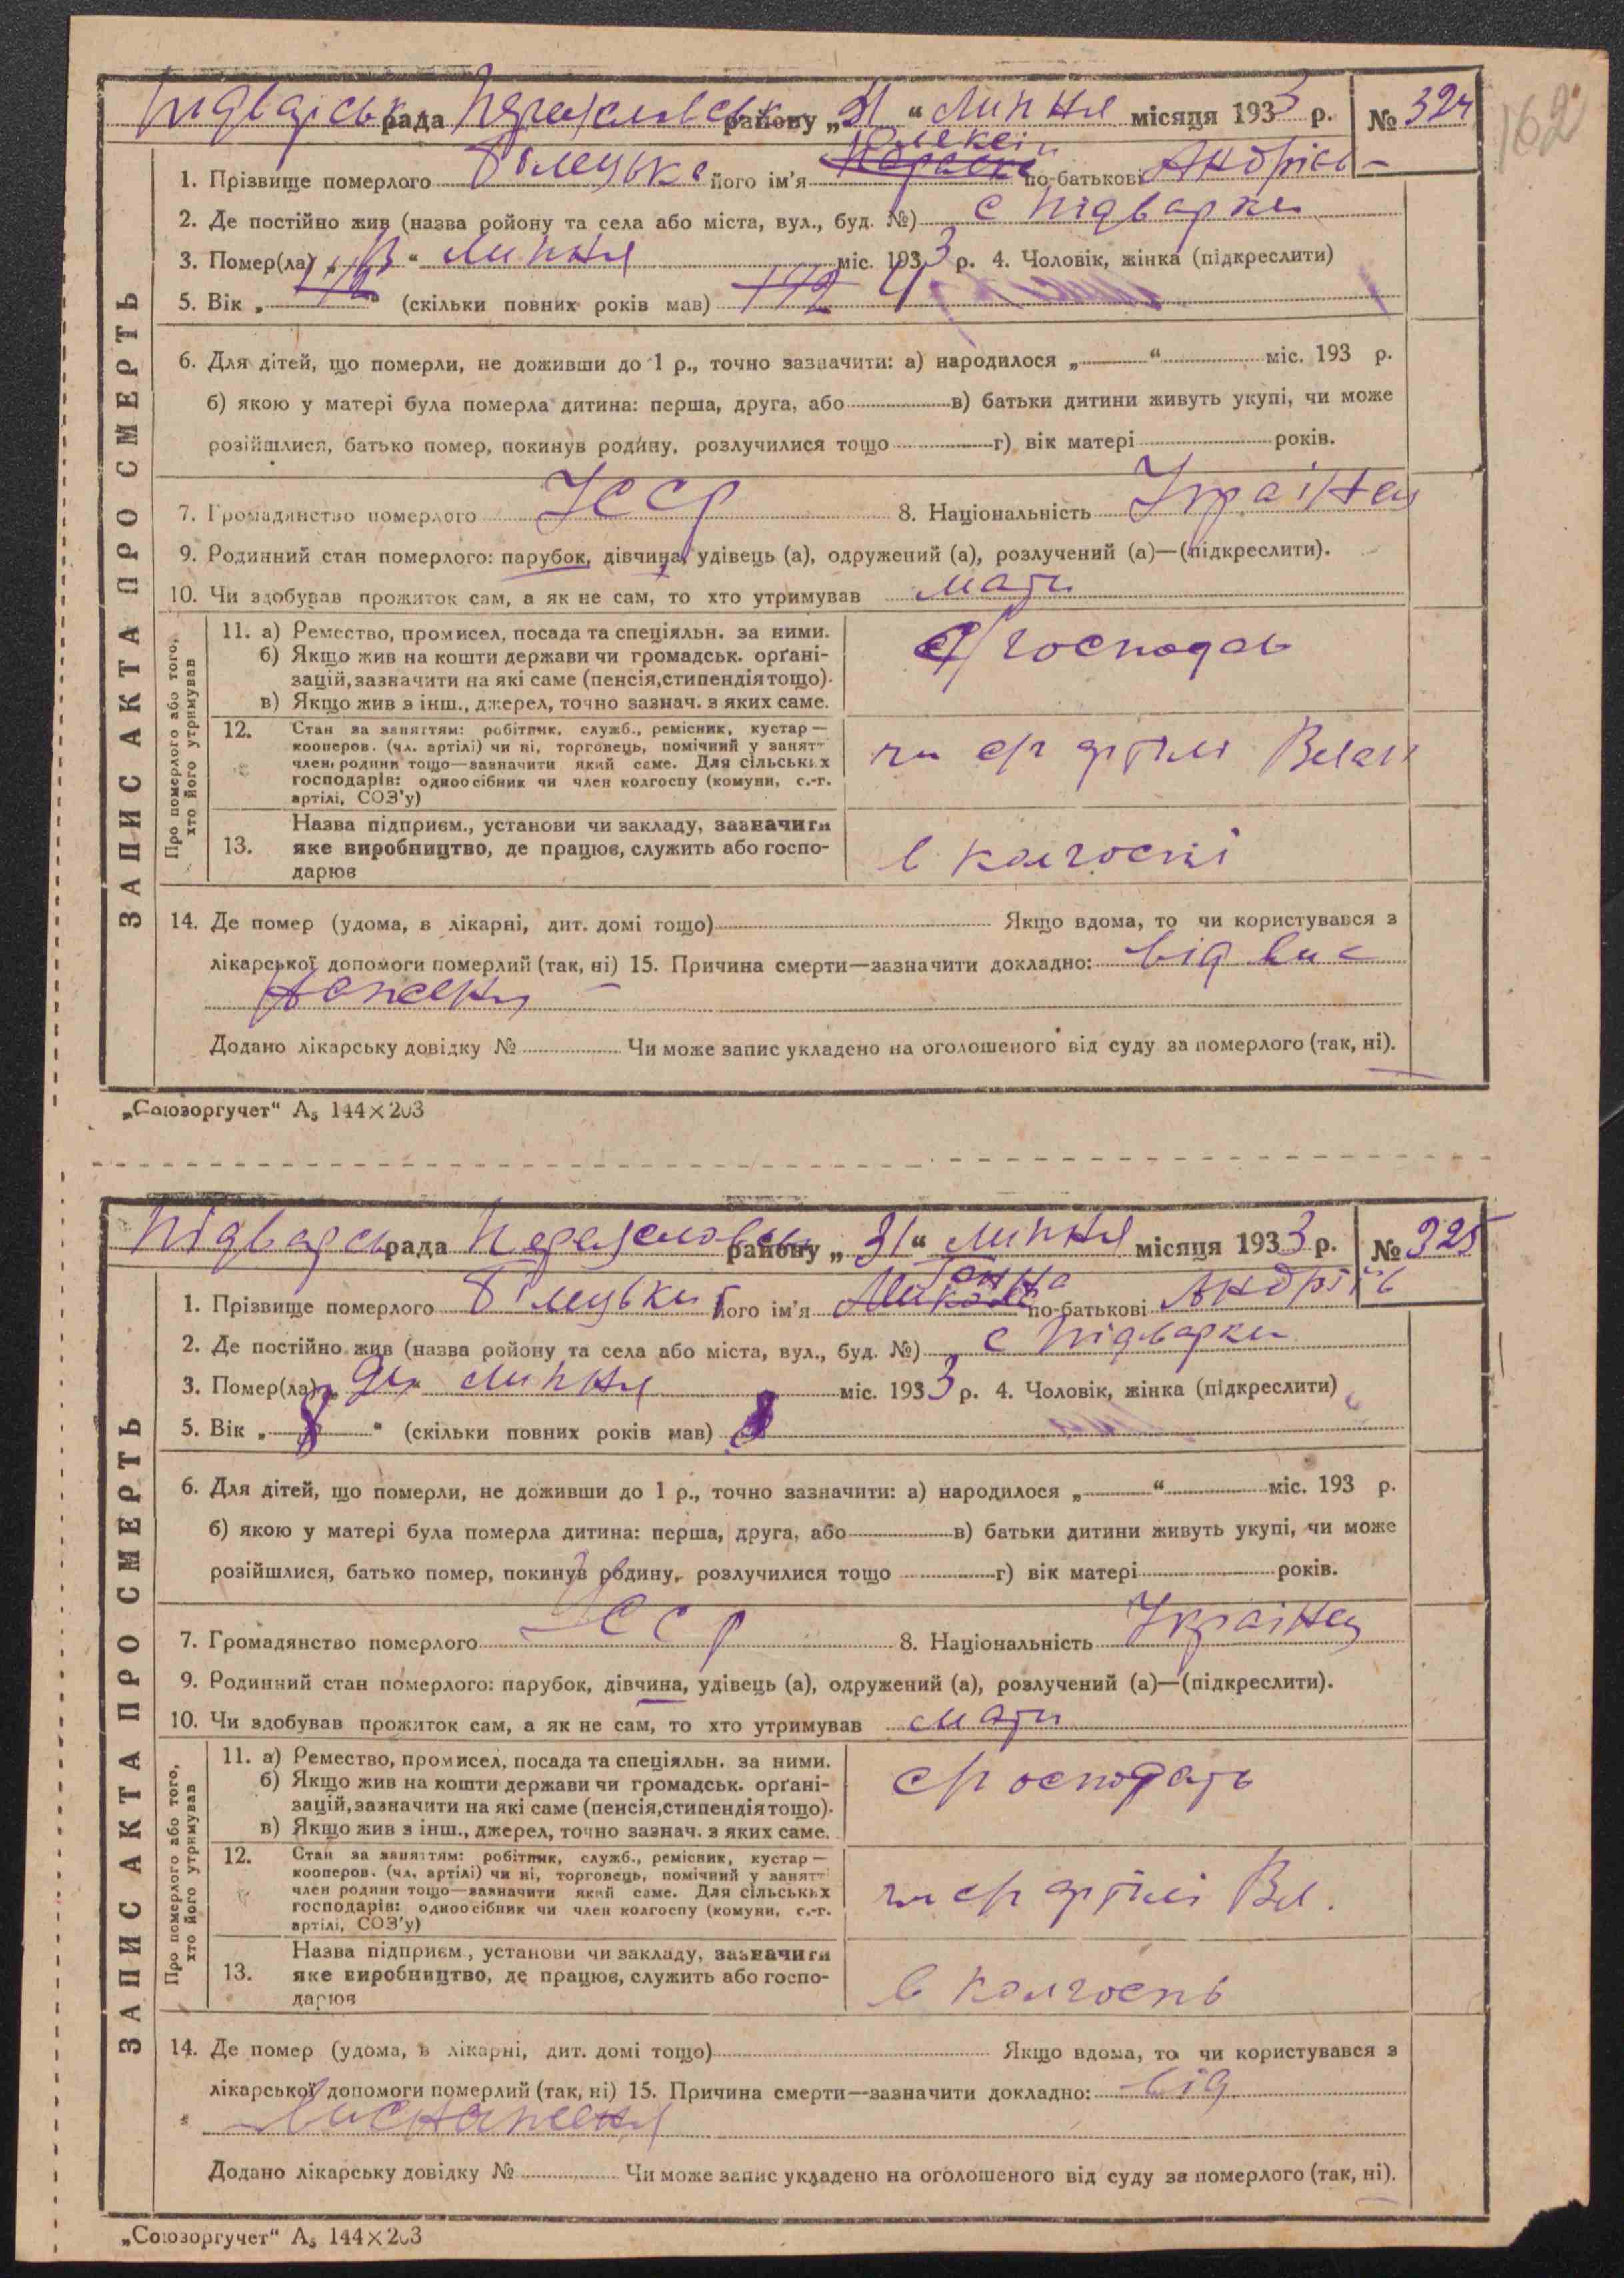 162
Підварськ рада Переяславськ району „31“ Липня місяця 1933 р. № 324
Олексій
1. Прізвище померлого Білецька його ім'я Параска по-батькові Андрієв-
2. Де постійно жив (назва ройону та села або міста, вул., буд. №) с Підварки
3. Помер(ла) „ “ Липня міс. 1933 р. 4. Чоловік, жінка (підкреслити)
5. Вік „ “ (скільки повних років мав) 4
6. Для дітей, що померли, не доживши до 1 р., точно зазначити: а) народилося „ “ міс. 193 р.
б) якою у матері була померла дитина: перша, друга, або в) батьки дитини живуть укупі, чи може
розійшлися, батько помер, покинув родину, розлучилися тощо г) вік матері років.
7. Громадянство померлого УССР 8. Національність Українец
9. Родинний стан померлого: парубок, дівчина, удівець (а), одружений (а), розлучений (а)—(підкреслити).
10. Чи здобував прожиток сам, а як не сам, то хто утримував мати
ЗАПИС АКТА ПРО СМЕРТЬ
Про померлого або того, хто його утримував
11. а) Ремество, промисел, посада та спеціяльн. за ними.
б) Якщо жив на кошти держави чи громадськ. орґані-
зацій, зазначити на які саме (пенсія, стипендія тощо).
в) Якщо жив з інш., джерел, точно зазнач. з яких саме.
с/господар
12. Стан за заняттям: робітник, служб., ремісник, кустар—
кооперов. (чл. артілі) чи ні, торговець, помічний у занятт
член родини тощо—зазначити який саме. Для сільських
господарів: одноосібник чи член колгоспу (комуни, с.-г.
артілі, СОЗ'у)
чл с/г артілі
13. Назва підприєм., установи чи закладу, зазначити
яке виробництво, де працює, служить або госпо-
дарює
в колгоспі
14. Де помер (удома, в лікарні, дит. домі тощо) Якщо вдома, то чи користувався з
лікарської допомоги померлий (так, ні) 15. Причина смерти—зазначити докладно: від вис
наження
Додано лікарську довідку № Чи може запис укладено на оголошеного від суду за померлого (так, ні).
„Союзоргучет“ А₅ 144×203
Підварськ рада Переяславськ району „31“ Липня місяця 1933 р. № 325
Ганна
1. Прізвище померлого Білецьки його ім'я по-батькові Андріїв
2. Де постійно жив (назва ройону та села або міста, вул., буд. №) с Підварки
3. Помер(ла) „ “ Липня міс. 1933 р. 4. Чоловік, жінка (підкреслити)
5. Вік „8“ (скільки повних років мав) 8
6. Для дітей, що померли, не доживши до 1 р., точно зазначити: а) народилося „ “ міс. 193 р.
б) якою у матері була померла дитина: перша, друга, або в) батьки дитини живуть укупі, чи може
розійшлися, батько помер, покинув родину, розлучилися тощо г) вік матері років.
7. Громадянство померлого УССР 8. Національність Українец
9. Родинний стан померлого: парубок, дівчина, удівець (а), одружений (а), розлучений (а)—(підкреслити).
10. Чи здобував прожиток сам, а як не сам, то хто утримував мати
ЗАПИС АКТА ПРО СМЕРТЬ
Про померлого або того, хто його утримував
11. а) Ремество, промисел, посада та спеціяльн. за ними.
б) Якщо жив на кошти держави чи громадськ. орґані-
зацій, зазначити на які саме (пенсія, стипендія тощо).
в) Якщо жив з інш., джерел, точно зазнач. з яких саме.
12. Стан за заняттям: робітник, служб., ремісник, кустар—
кооперов. (чл. артілі) чи ні, торговець, помічний у занятт
член родини тощо—зазначити який саме. Для сільських
господарів: одноосібник чи член колгоспу (комуни, с.-г.
артілі, СОЗ'у)
чл с/г артілі Вел.
13. Назва підприєм., установи чи закладу, зазначити
яке виробництво, де працює, служить або госпо-
дарює
в колгоспь
14. Де помер (удома, в лікарні, дит. домі тощо) Якщо вдома, то чи користувався з
лікарської допомоги померлий (так, ні) 15. Причина смерти—зазначити докладно: від
виснаження
Додано лікарську довідку № Чи може запис укладено на оголошеного від суду за померлого (так, ні).
„Союзоргучет“ А₅ 144×203